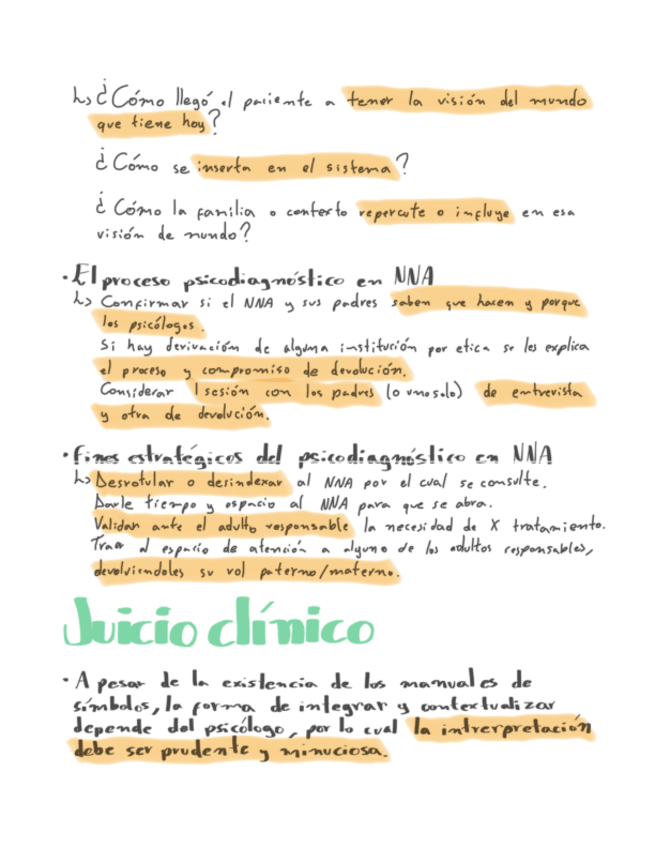 ↳ ¿Cómo llegó el paciente a tener la visión del mundo
que tiene hoy?
¿Cómo se inserta en el sistema?
¿Cómo la familia o contexto repercute o influye en esa
visión de mundo?
· El proceso psicodiagnóstico en NNA
↳ Confirmar si el NNA y sus padres saben que hacen y porque
los psicólogos.
Si hay derivación de alguna institución por etica se les explica
el proceso y compromiso de devolución.
Considerar 1 sesión con los padres (o uno solo) de entrevista
y otra de devolución.
· Fines estratégicos del psicodiagnóstico en NNA
↳ Desrotular o desindexar al NNA por el cual se consulte.
Darle tiempo y espacio al NNA para que se abra.
Validar ante el adulto responsable la necesidad de X tratamiento.
Traer al espacio de atención a alguno de los adultos responsables,
devolviendoles su rol paterno/materno.
Juicio clínico
· A pesar de la existencia de los manuales de
símbolos, la forma de integrar y contextualizar
depende del psicólogo, por lo cual la intrerpretación
debe ser prudente y minuciosa.